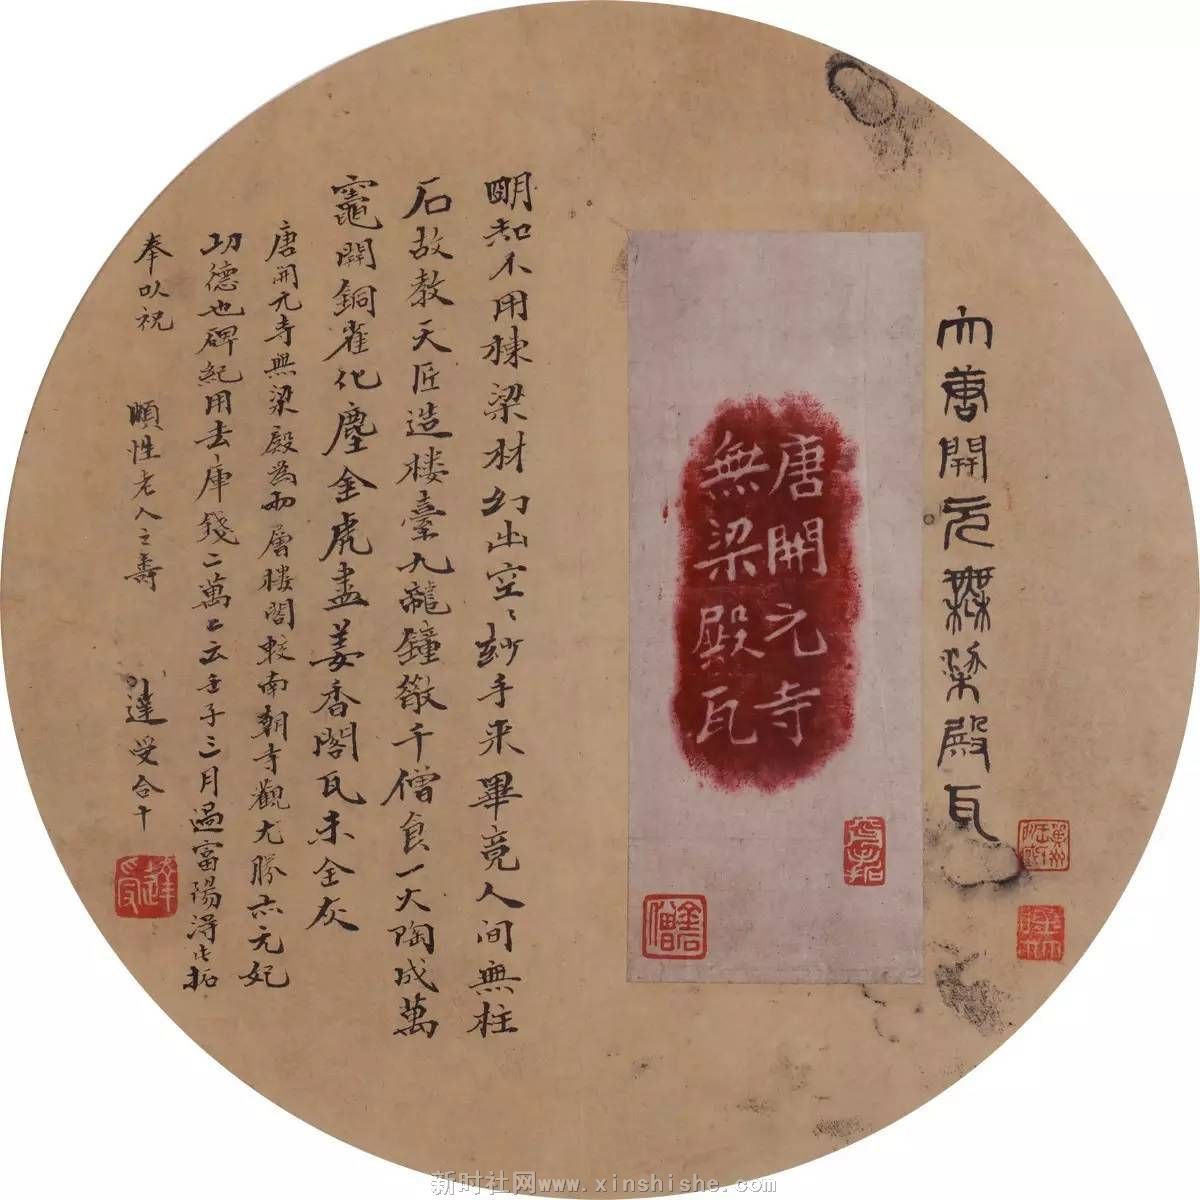 大唐開元無梁殿瓦
唐開元寺
無梁殿瓦
金石僧
明知不用棟梁材幻出空〻妙手来畢竟人间無柱
石故教天匠造楼臺九龍鐘敬千僧食一火陶成萬
竈開銅雀化塵金虎盡姜香閣瓦未全灰
唐開元寺無梁殿為兩層楼閣較南朝寺觀尤勝亦元妃
功德也碑紀用去庫錢二萬〻云壬子三月過富陽得此拓
奉以祝
頤性老人之壽
達受合十
達受
新时社网www.xinshishe.com